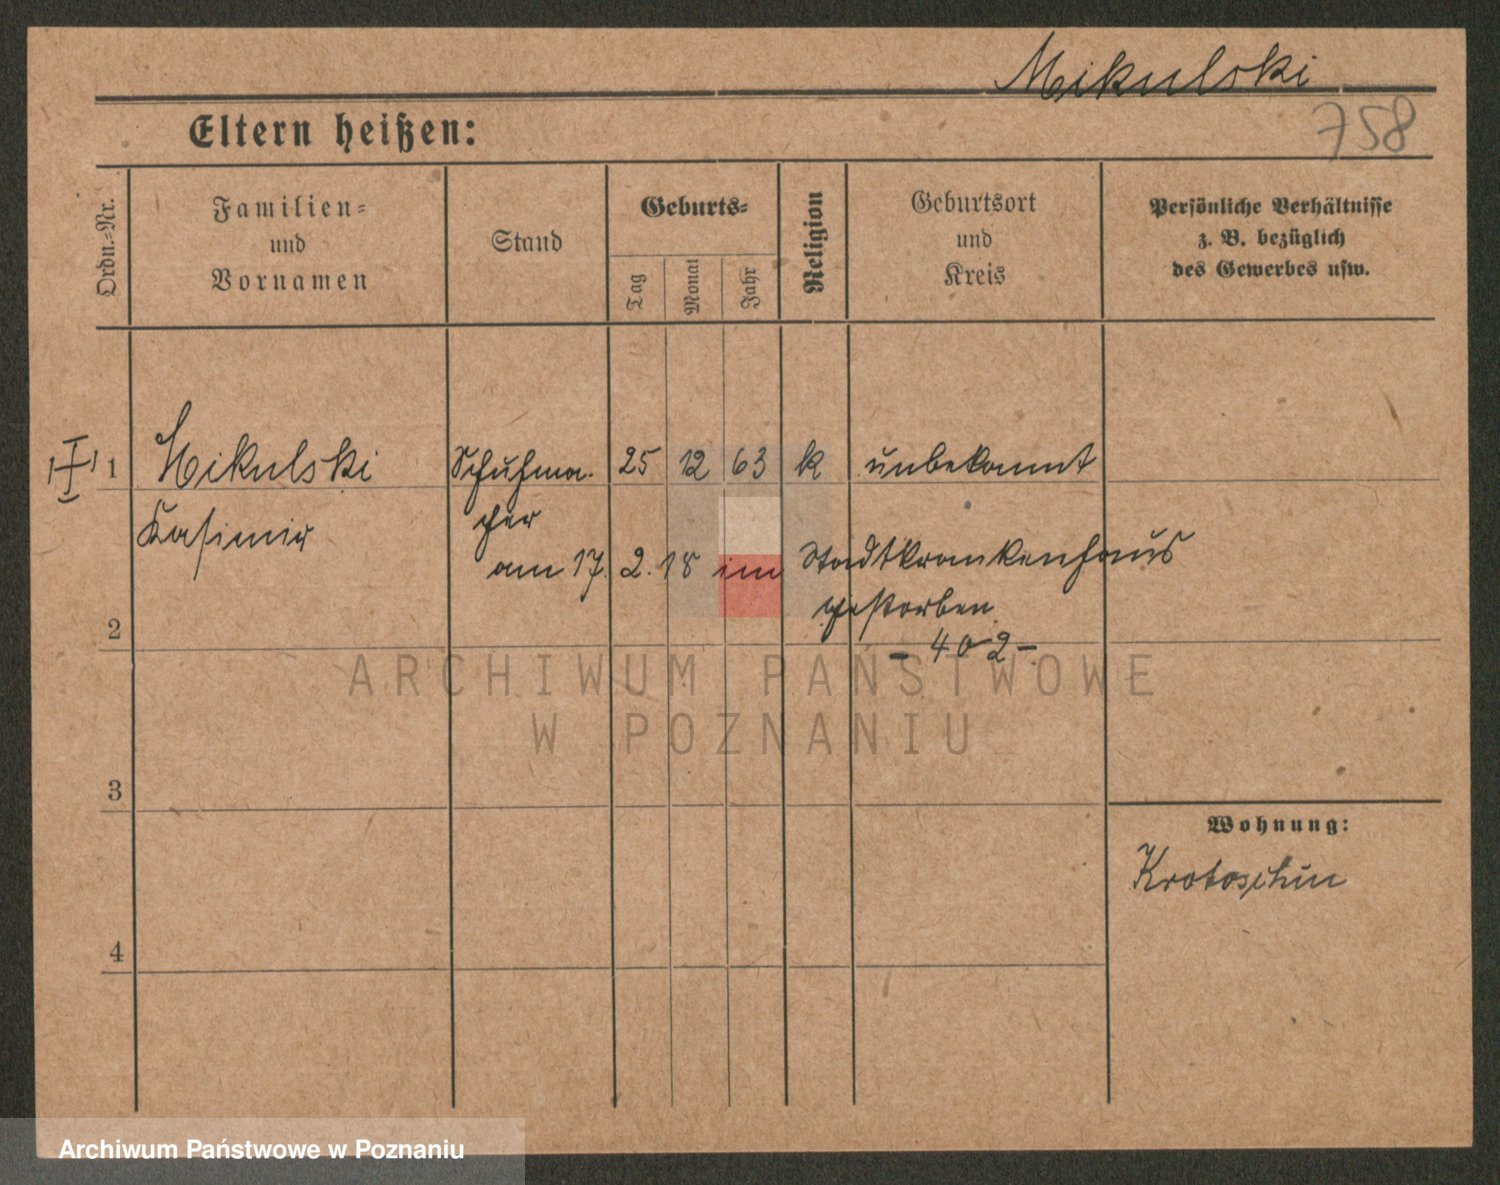 Mikulski
758
Eltern heißen:
Ordn.=Nr.
Familien=
und
Vornamen
Stand
Geburts=
Tag
Monat
Jahr
Religion
Geburtsort
und
Kreis
Persönliche Verhältnisse
z. B. bezüglich
des Gewerbes usw.
1 Mikulski Schuhma- 25 12 63 k unbekannt
Kasimir cher
am 17. 2. 18 im Stadtkrankenhaus
gestorben
- 402 -
2
3
4
Wohnung:
Krotoschin
ARCHIWUM PAŃSTWOWE
W POZNANIU
Archiwum Państwowe w Poznaniu